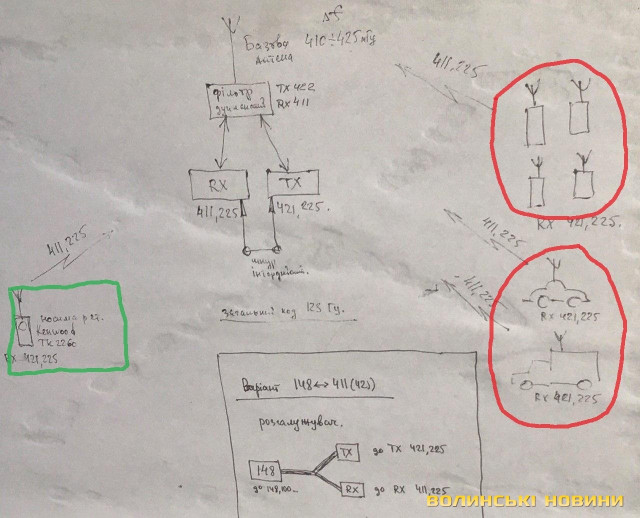 Δf
Базова 410÷425 мГц
Антена
фільтр TX 422
RX 411
RX
TX
411,225
421,225.
шнур
загальний код 123 Гц.
411,225
носима р.ст.
Kenwood
TK
RX 421,225
411,225
RX 421,225.
411,225
RX 421,225
411,225
RX 421,225
Варіант 148↔411(425)
розгалужувач.
148
до 148,100
TX
до TX 421,225
RX
до RX 411,225
ВОЛИНСЬКІ НОВИНИ